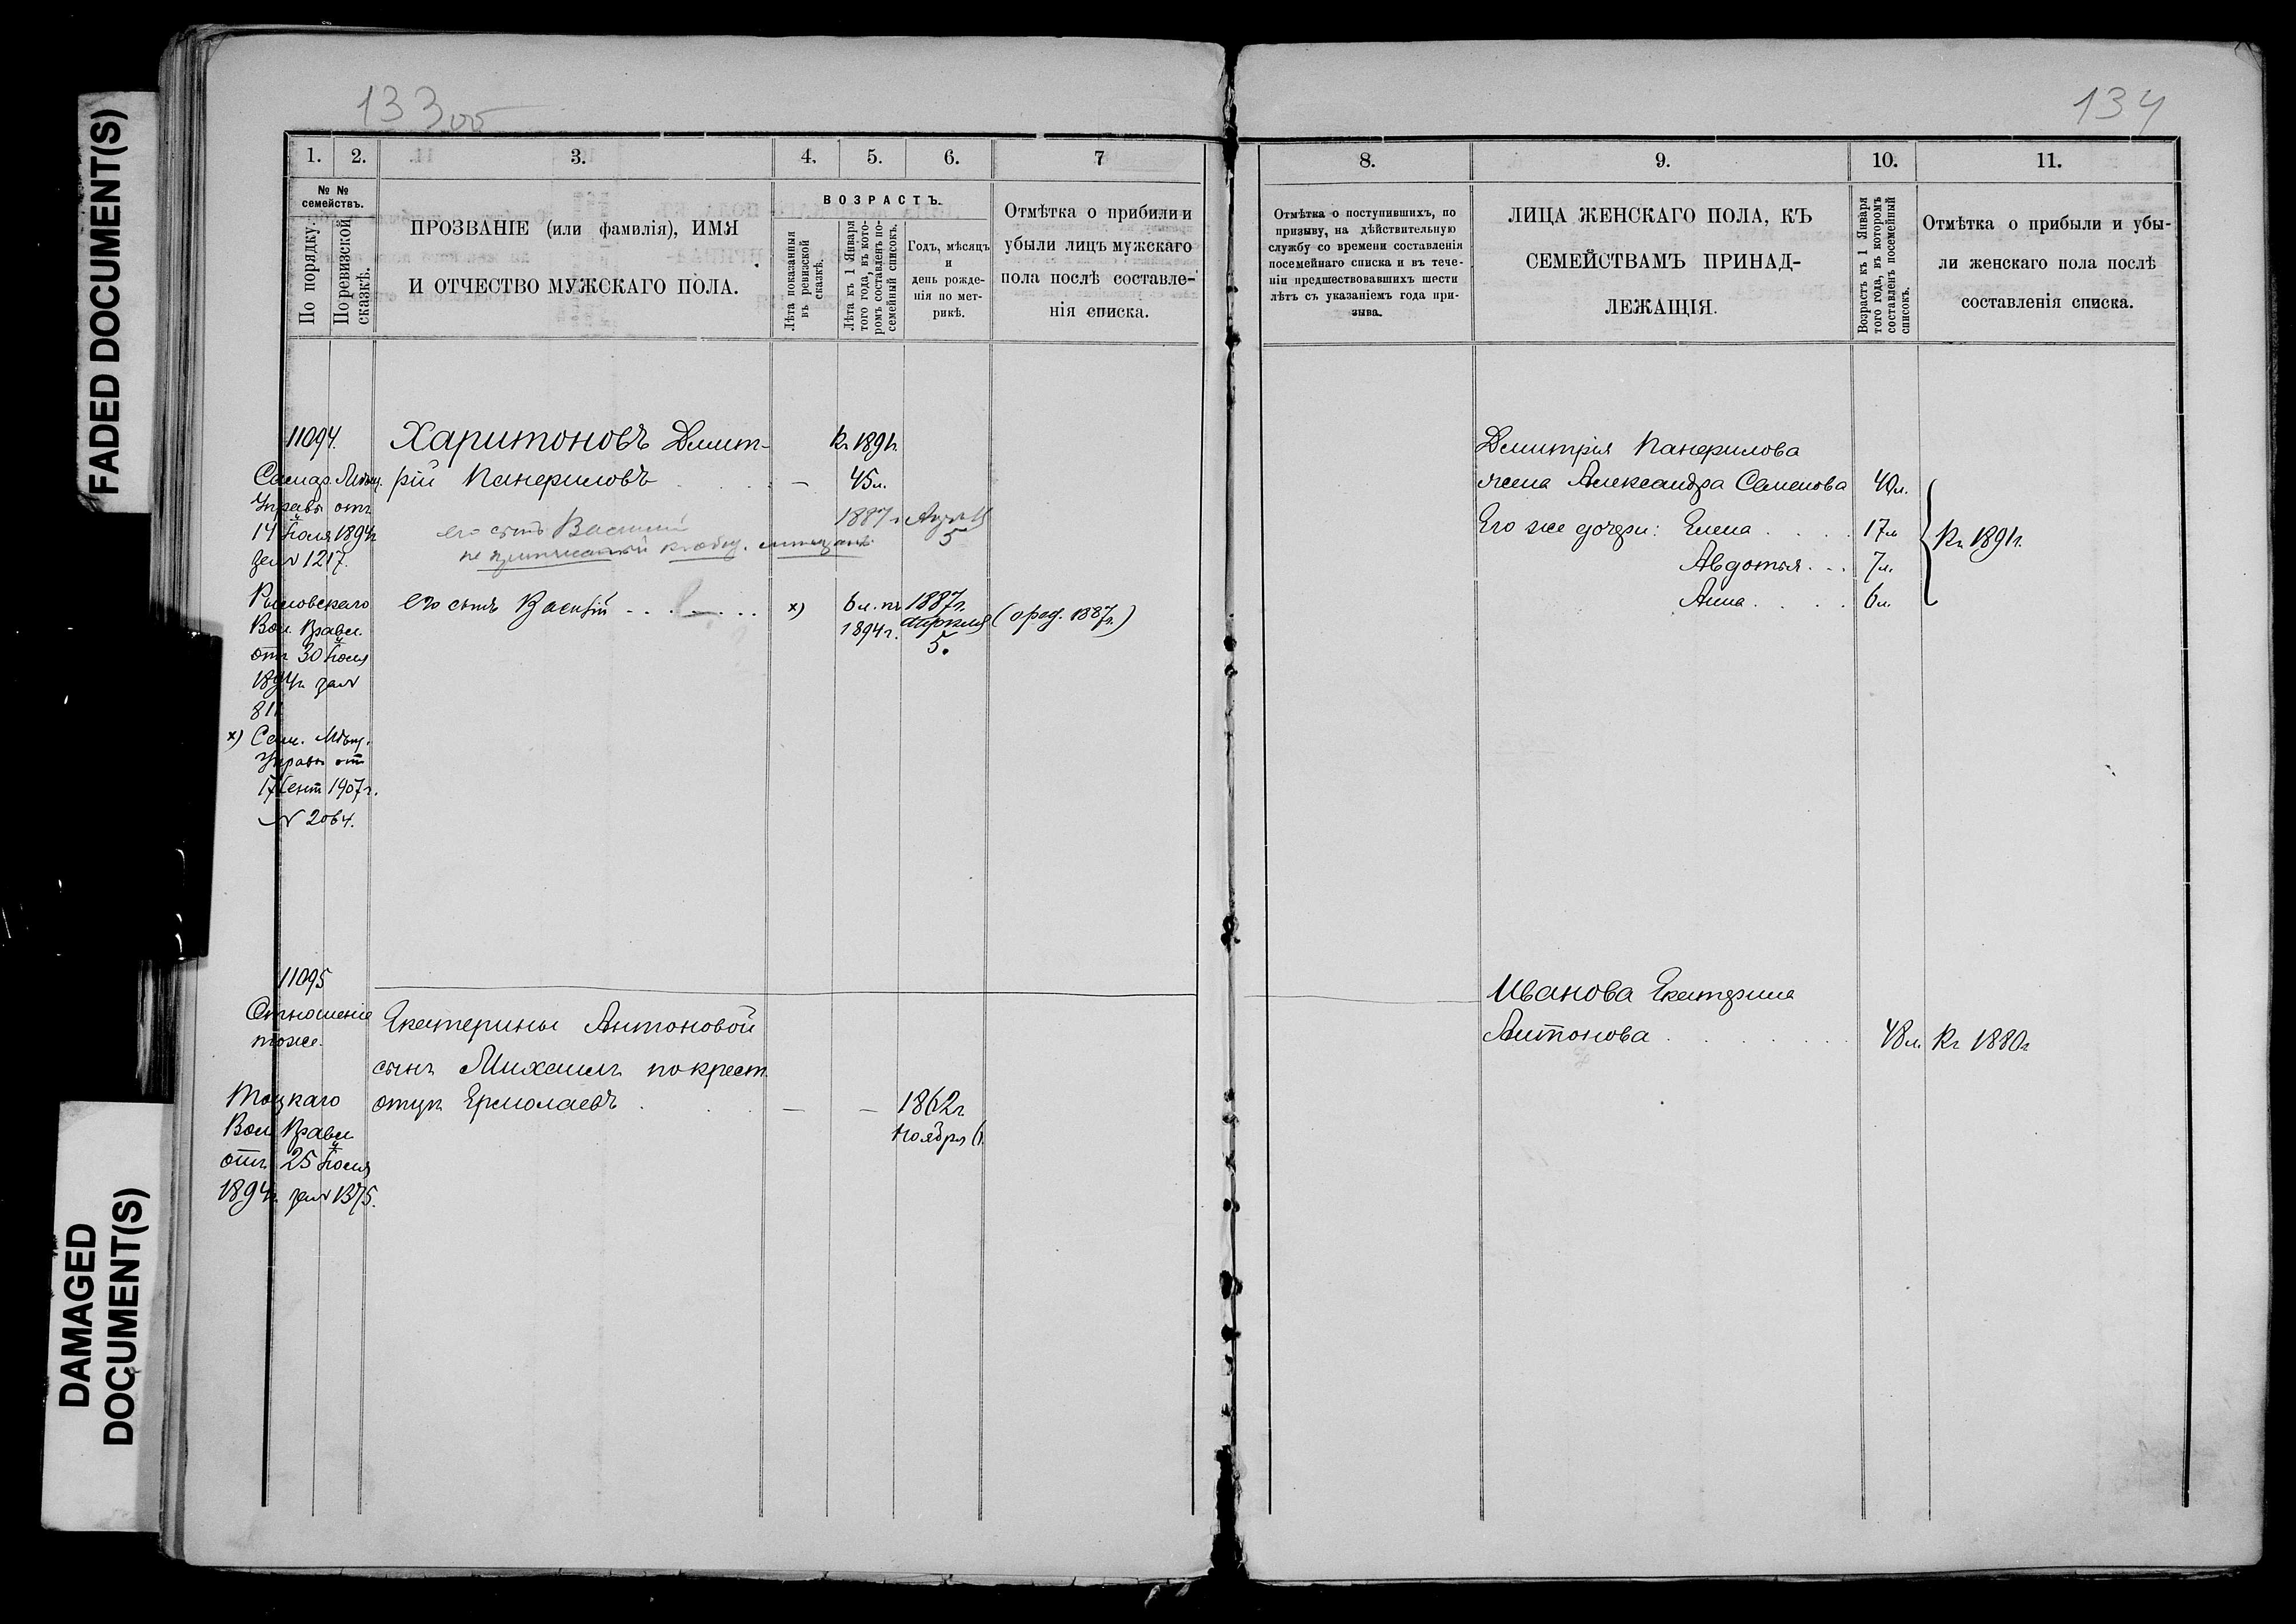 FADED DOCUMENT(S)
DAMAGED
DOCUMENT(S)
133об
1. 2. 3. 4. 5. 6. 7
№ №
семействъ.
По порядку.
По ревизской
сказкѣ.
ПРОЗВАНІЕ (или фамилія), ИМЯ
И ОТЧЕСТВО МУЖСКАГО ПОЛА.
ВОЗРАСТЪ.
Лѣта показанныя
въ ревизской
сказкѣ.
Лѣта къ 1 Января
того года, въ кото-
ромъ составленъ по-
семейный списокъ.
Годъ, мѣсяцъ
и
день рожде-
нія по мет-
рикѣ.
Отмѣтка о прибыли и
убыли лицъ мужскаго
пола послѣ составле-
нія списка.
11094.
Самар. Мѣщ.
Управы отъ
14 Іюля 1894г
за № 1217.
Харитоновъ Дмит-
рій Канериловъ . . . —
къ 1891г.
45л.
его сынъ Василий
1887г Апрѣля
5
не приписанъ къ общ. мѣщанъ
его сынъ Василій . . . . . x) 6л. къ 1887г.
1894г. апрѣля (прод. 1887г.)
5.
Вол. Правл.
отъ 30 Іюля
1894г за №
811
x) Сам. Мѣщ.
Управы отъ
17 Сент 1907г.
№ 2064.
11095
Отношеніе
тоже.
Тоцкаго
Вол. Правл
отъ 25 Іюля
1894г. за № 1375.
Екатерины Антоновой
сынъ Михаилъ по крест.
отцу Ермолаевъ . . . — — 1862г
Ноября 6.
134
8. 9. 10. 11.
Отмѣтка о поступившихъ, по
призыву, на дѣйствительную
службу со времени составленія
посемейнаго списка и въ тече-
ніи предшествовавшихъ шести
лѣтъ съ указаніемъ года при-
зыва.
ЛИЦА ЖЕНСКАГО ПОЛА, КЪ
СЕМЕЙСТВАМЪ ПРИНАД-
ЛЕЖАЩІЯ.
Возрастъ къ 1 Января
того года, въ которомъ
составленъ посемейный
списокъ.
Отмѣтка о прибыли и убы-
ли женскаго пола послѣ
составленія списка.
Дмитрія Канерилова
жена Александра Семенова 40л.
Его же дочери: Елена . . . . 17л
Авдотья . . . 7л.
Анна . . . . 6л.
Къ 1891г.
Иванова Екатерина
Антонова . . . . . . . 48л. Къ 1880г